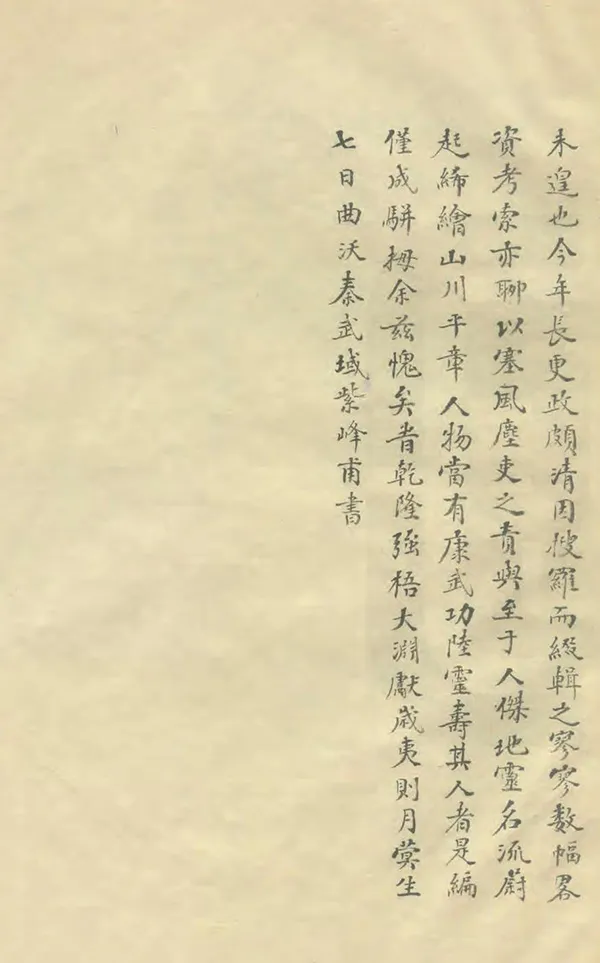 未遑也今年長夏政頗清因搜羅而綴輯之寥寥数幅畧
資考索亦聊以塞風塵吏之責與至于人傑地靈名流蔚
起絺繪山川平章人物當有康武功陸靈壽其人者是編
僅成駢拇余兹愧矣旹乾隆强梧大淵獻歲夷則月蓂生
七日曲沃秦武域紫峰甫書